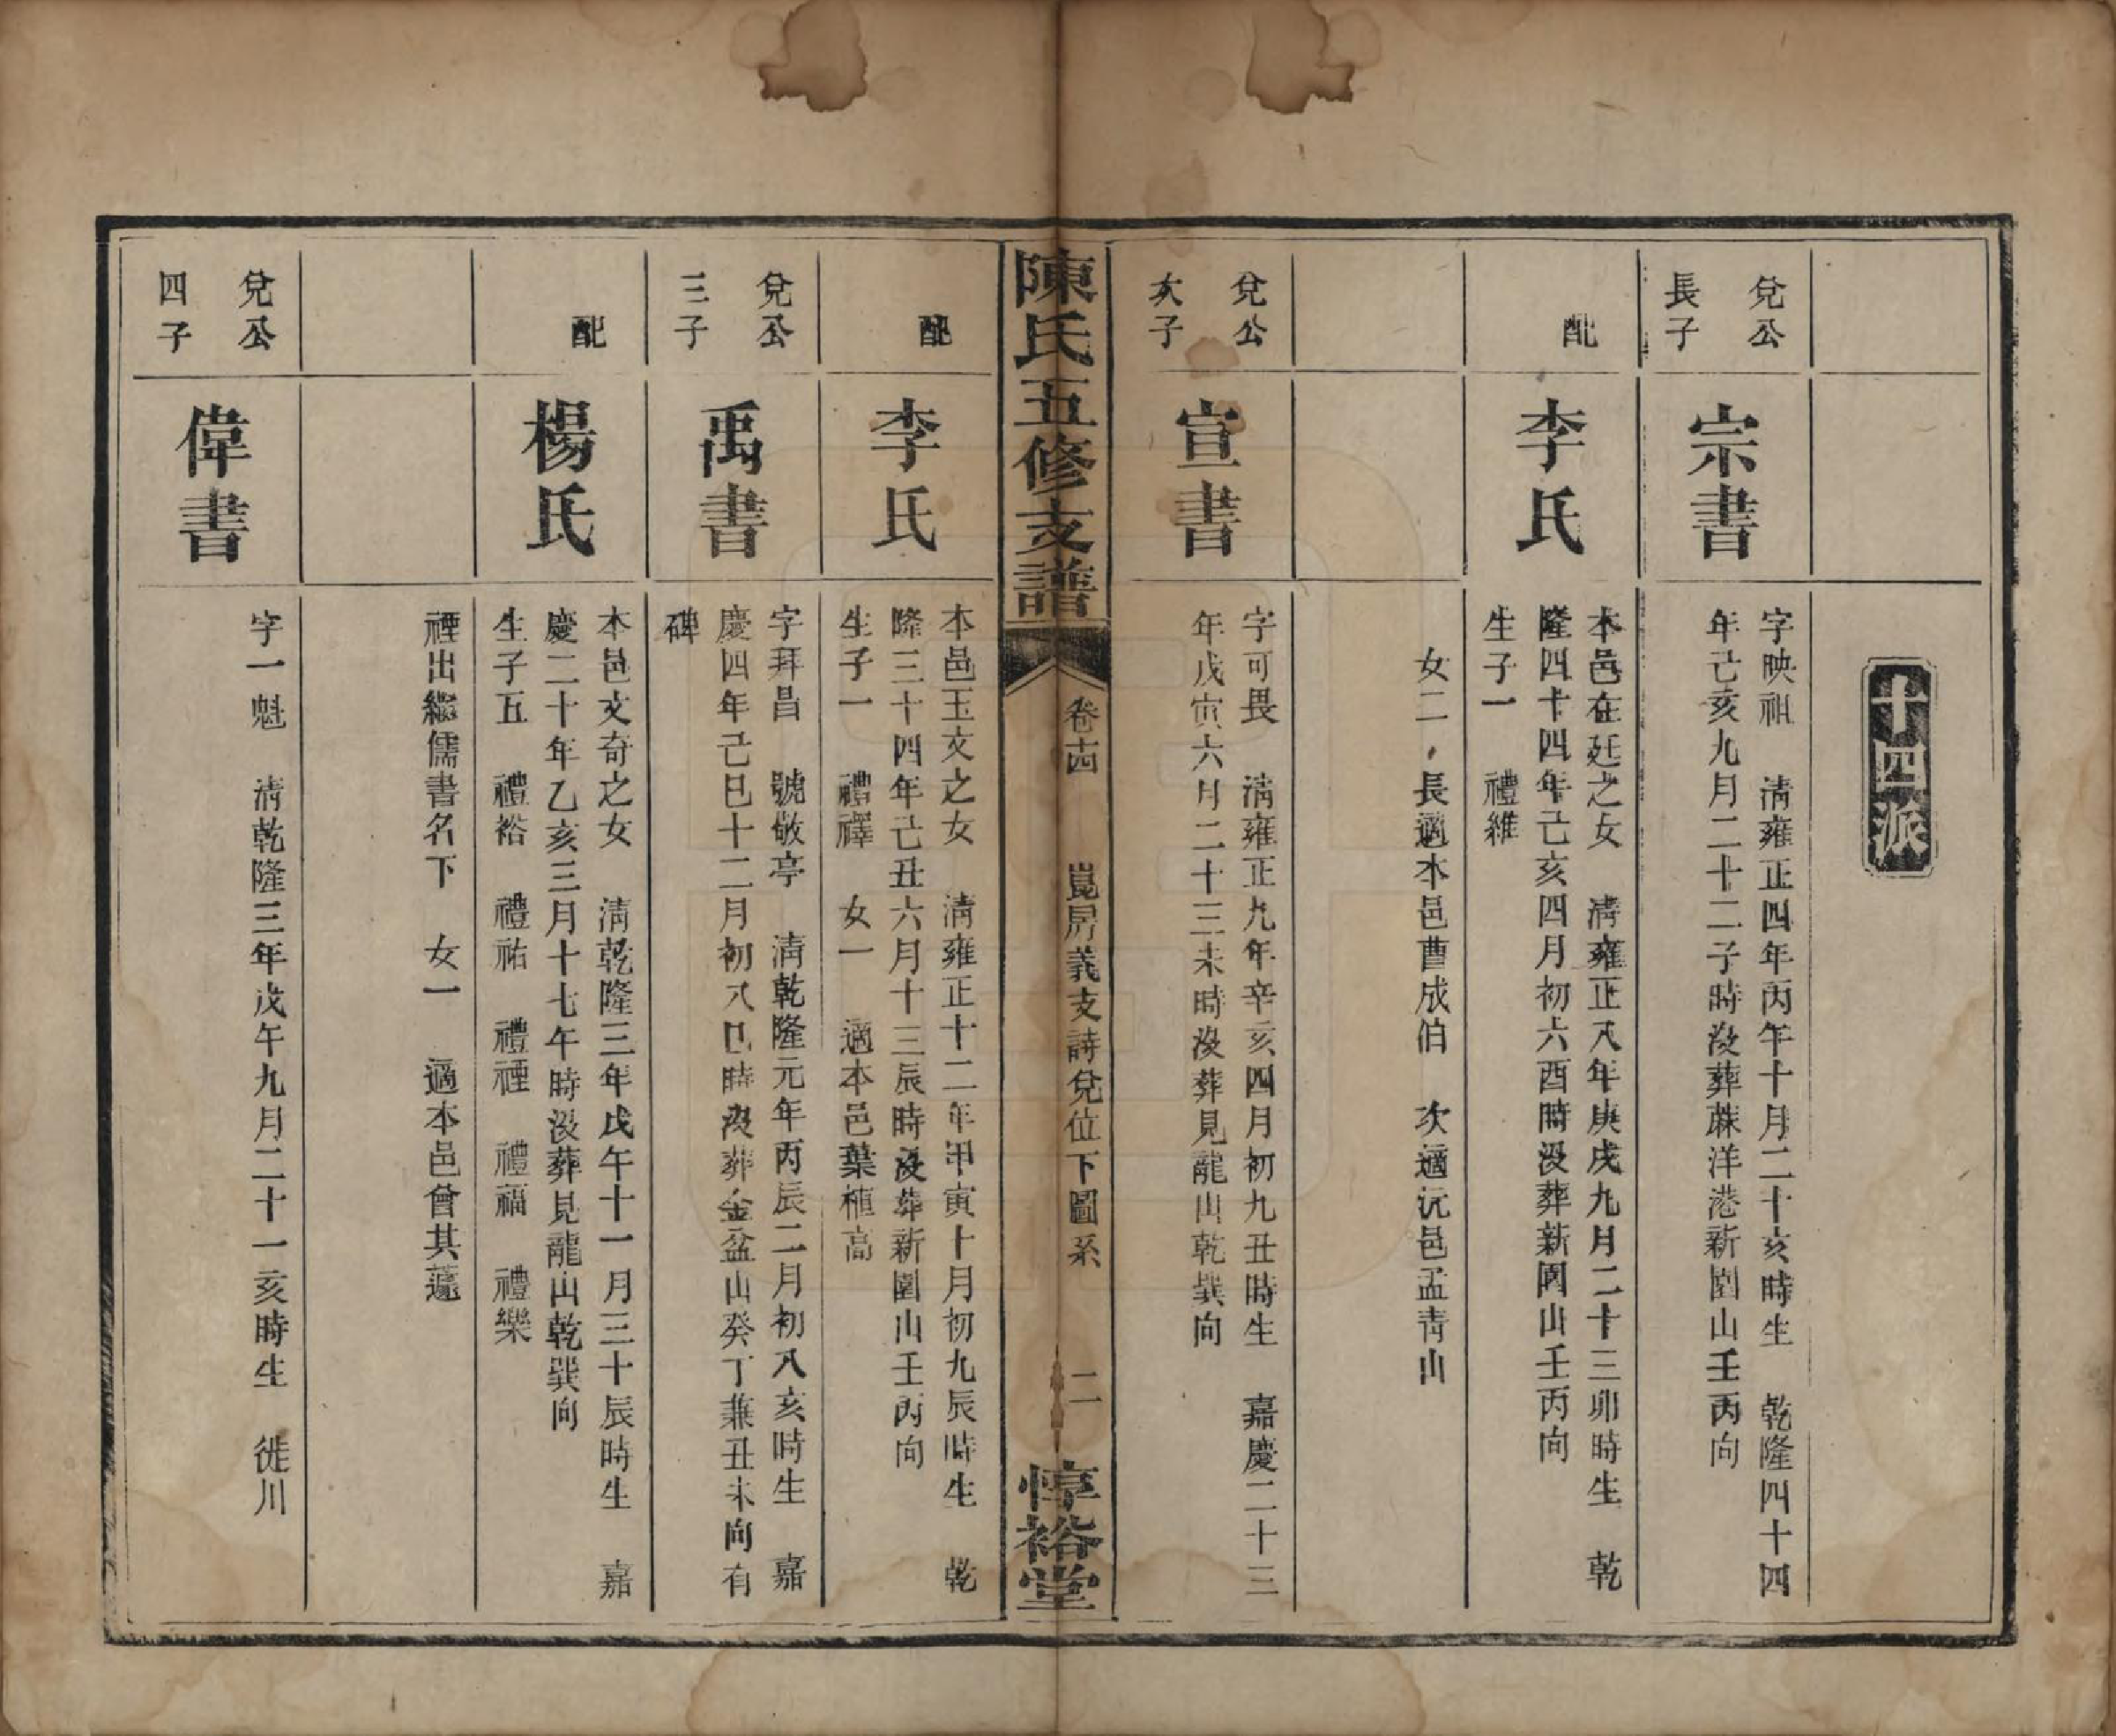 十四派
兌公
長子
宗書
字映祖　清雍正四年丙午十月二十亥時生　乾隆四十四
年己亥九月二十二子時没葬蔴洋港新圍山壬丙向
配
李氏
本邑在廷之女　清雍正八年庚戌九月二十三卯時生　乾
隆四十四年己亥四月初六酉時没葬新圍山壬丙向
生子一　禮維
女二　長適本邑曹成伯　次適沅邑孟青山
兌公
次子
宣書
字可畏　清雍正九年辛亥四月初九丑時生　嘉慶二十三
年戊寅六月二十三未時没葬見龍山乾巽向
陳氏五修支譜
卷十四
崑房義支詩兌位下圖系
二
惇裕堂
配
李氏
本邑玉文之女　清雍正十二年甲寅十月初九辰時生　乾
隆三十四年己丑六月十三辰時没葬新圍山壬丙向
生子一　禮釋　女一　適本邑葉植高
兌公
三子
禹書
字拜昌　號敬亭　清乾隆元年丙辰二月初八亥時生　嘉
慶四年己巳十二月初八巳時没葬金盆山癸丁兼丑未向有
碑
配
楊氏
本邑文奇之女　清乾隆三年戊午十一月三十辰時生　嘉
慶二十年乙亥三月十七午時没葬見龍山乾巽向
生子五　禮裕　禮祐　禮禋　禮福　禮樂
禋出繼儒書名下　女一　適本邑曾其蘧
兌公
四子
偉書
字一魁　清乾隆三年戊午九月二十一亥時生　徙川